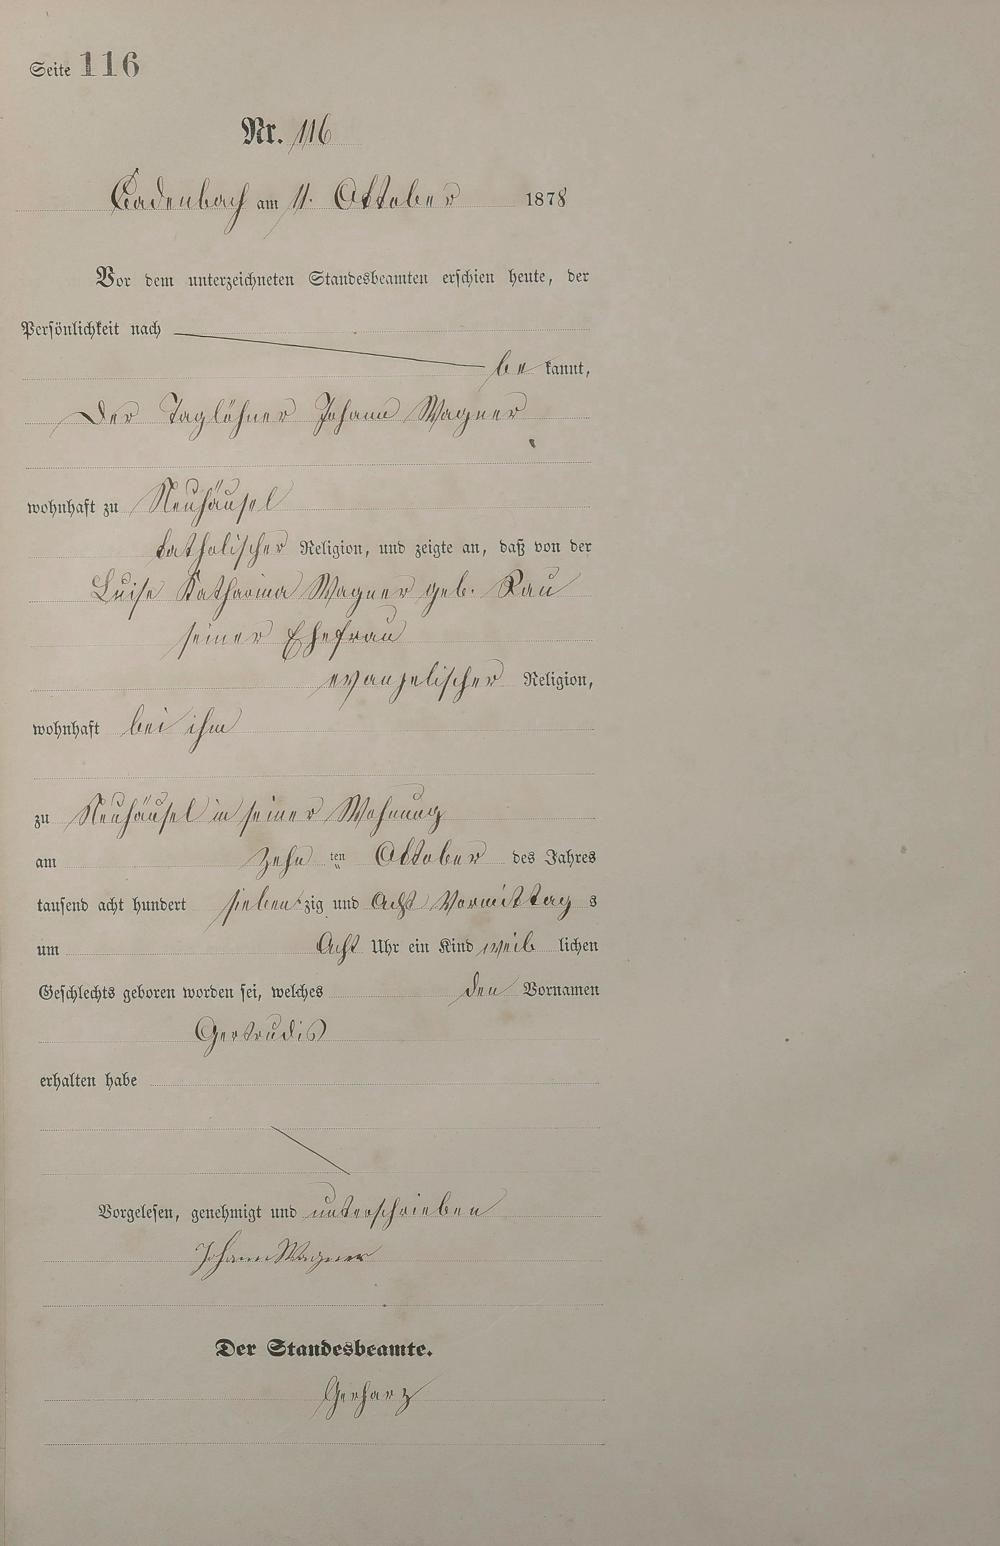 Seite 116
Nr. 116
Cadenbach am 11. Oktober 1878
Vor dem unterzeichneten Standesbeamten erschien heute, der
Persönlichkeit nach
be kannt,
Der Taglöhner Johann Wagner
wohnhaft zu Neuhäusel
katholischer Religion, und zeigte an, daß von der
Luise Katharina Wagner geb. Rau
seiner Ehefrau
evangelischer Religion,
wohnhaft bei ihm
zu Neuhäusel in seiner Wohnung
am zehn ten Oktober des Jahres
tausend acht hundert sieben zig und Acht Vormittag s
um Acht Uhr ein Kind weib lichen
Geschlechts geboren worden sei, welches den Vornamen
Gertrudis
erhalten habe
Vorgelesen, genehmigt und unterschrieben
Johann Wagner
Der Standesbeamte.
Gerharz